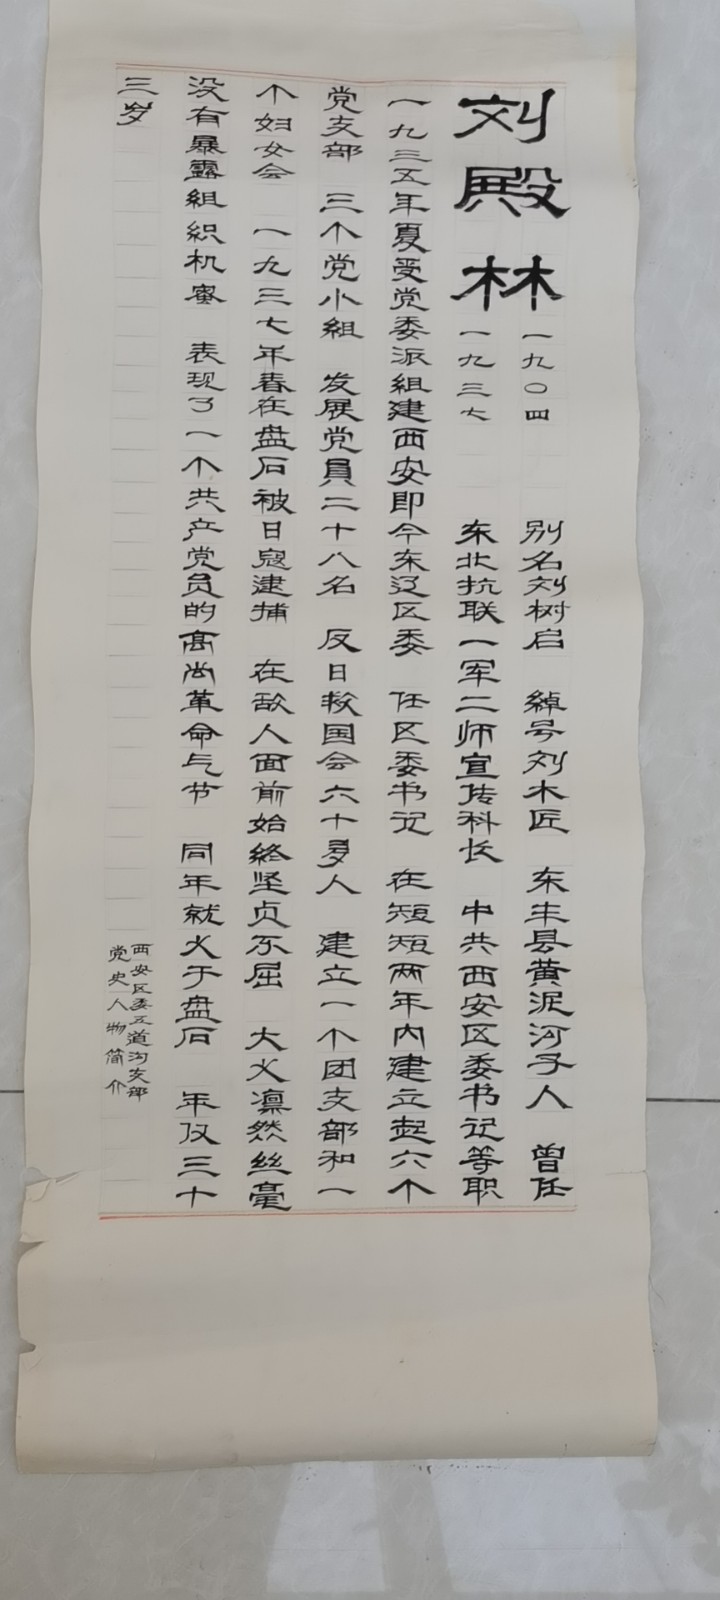 刘殿林
一九〇四
一九三七
别名刘树启 绰号刘木匠 东丰县黄泥河子人 曾任
东北抗联一军二师宣传科长 中共西安区委书记等职
一九三五年夏受党委派組建西安即今东辽区委 任区委书记 在短短两年内建立起六个
党支部 三个党小組 发展党員二十八名 反日救国会六十多人 建立一个团支部和一
个妇女会 一九三七年春在盘石被日寇逮捕 在敌人面前始終坚贞不屈 大义凛然丝毫
没有暴露組织机蜜 表现了一个共产党员的高尚革命气节 同年就义于盘石 年仅三十
三岁
西安区委五道沟支部
党史人物简介